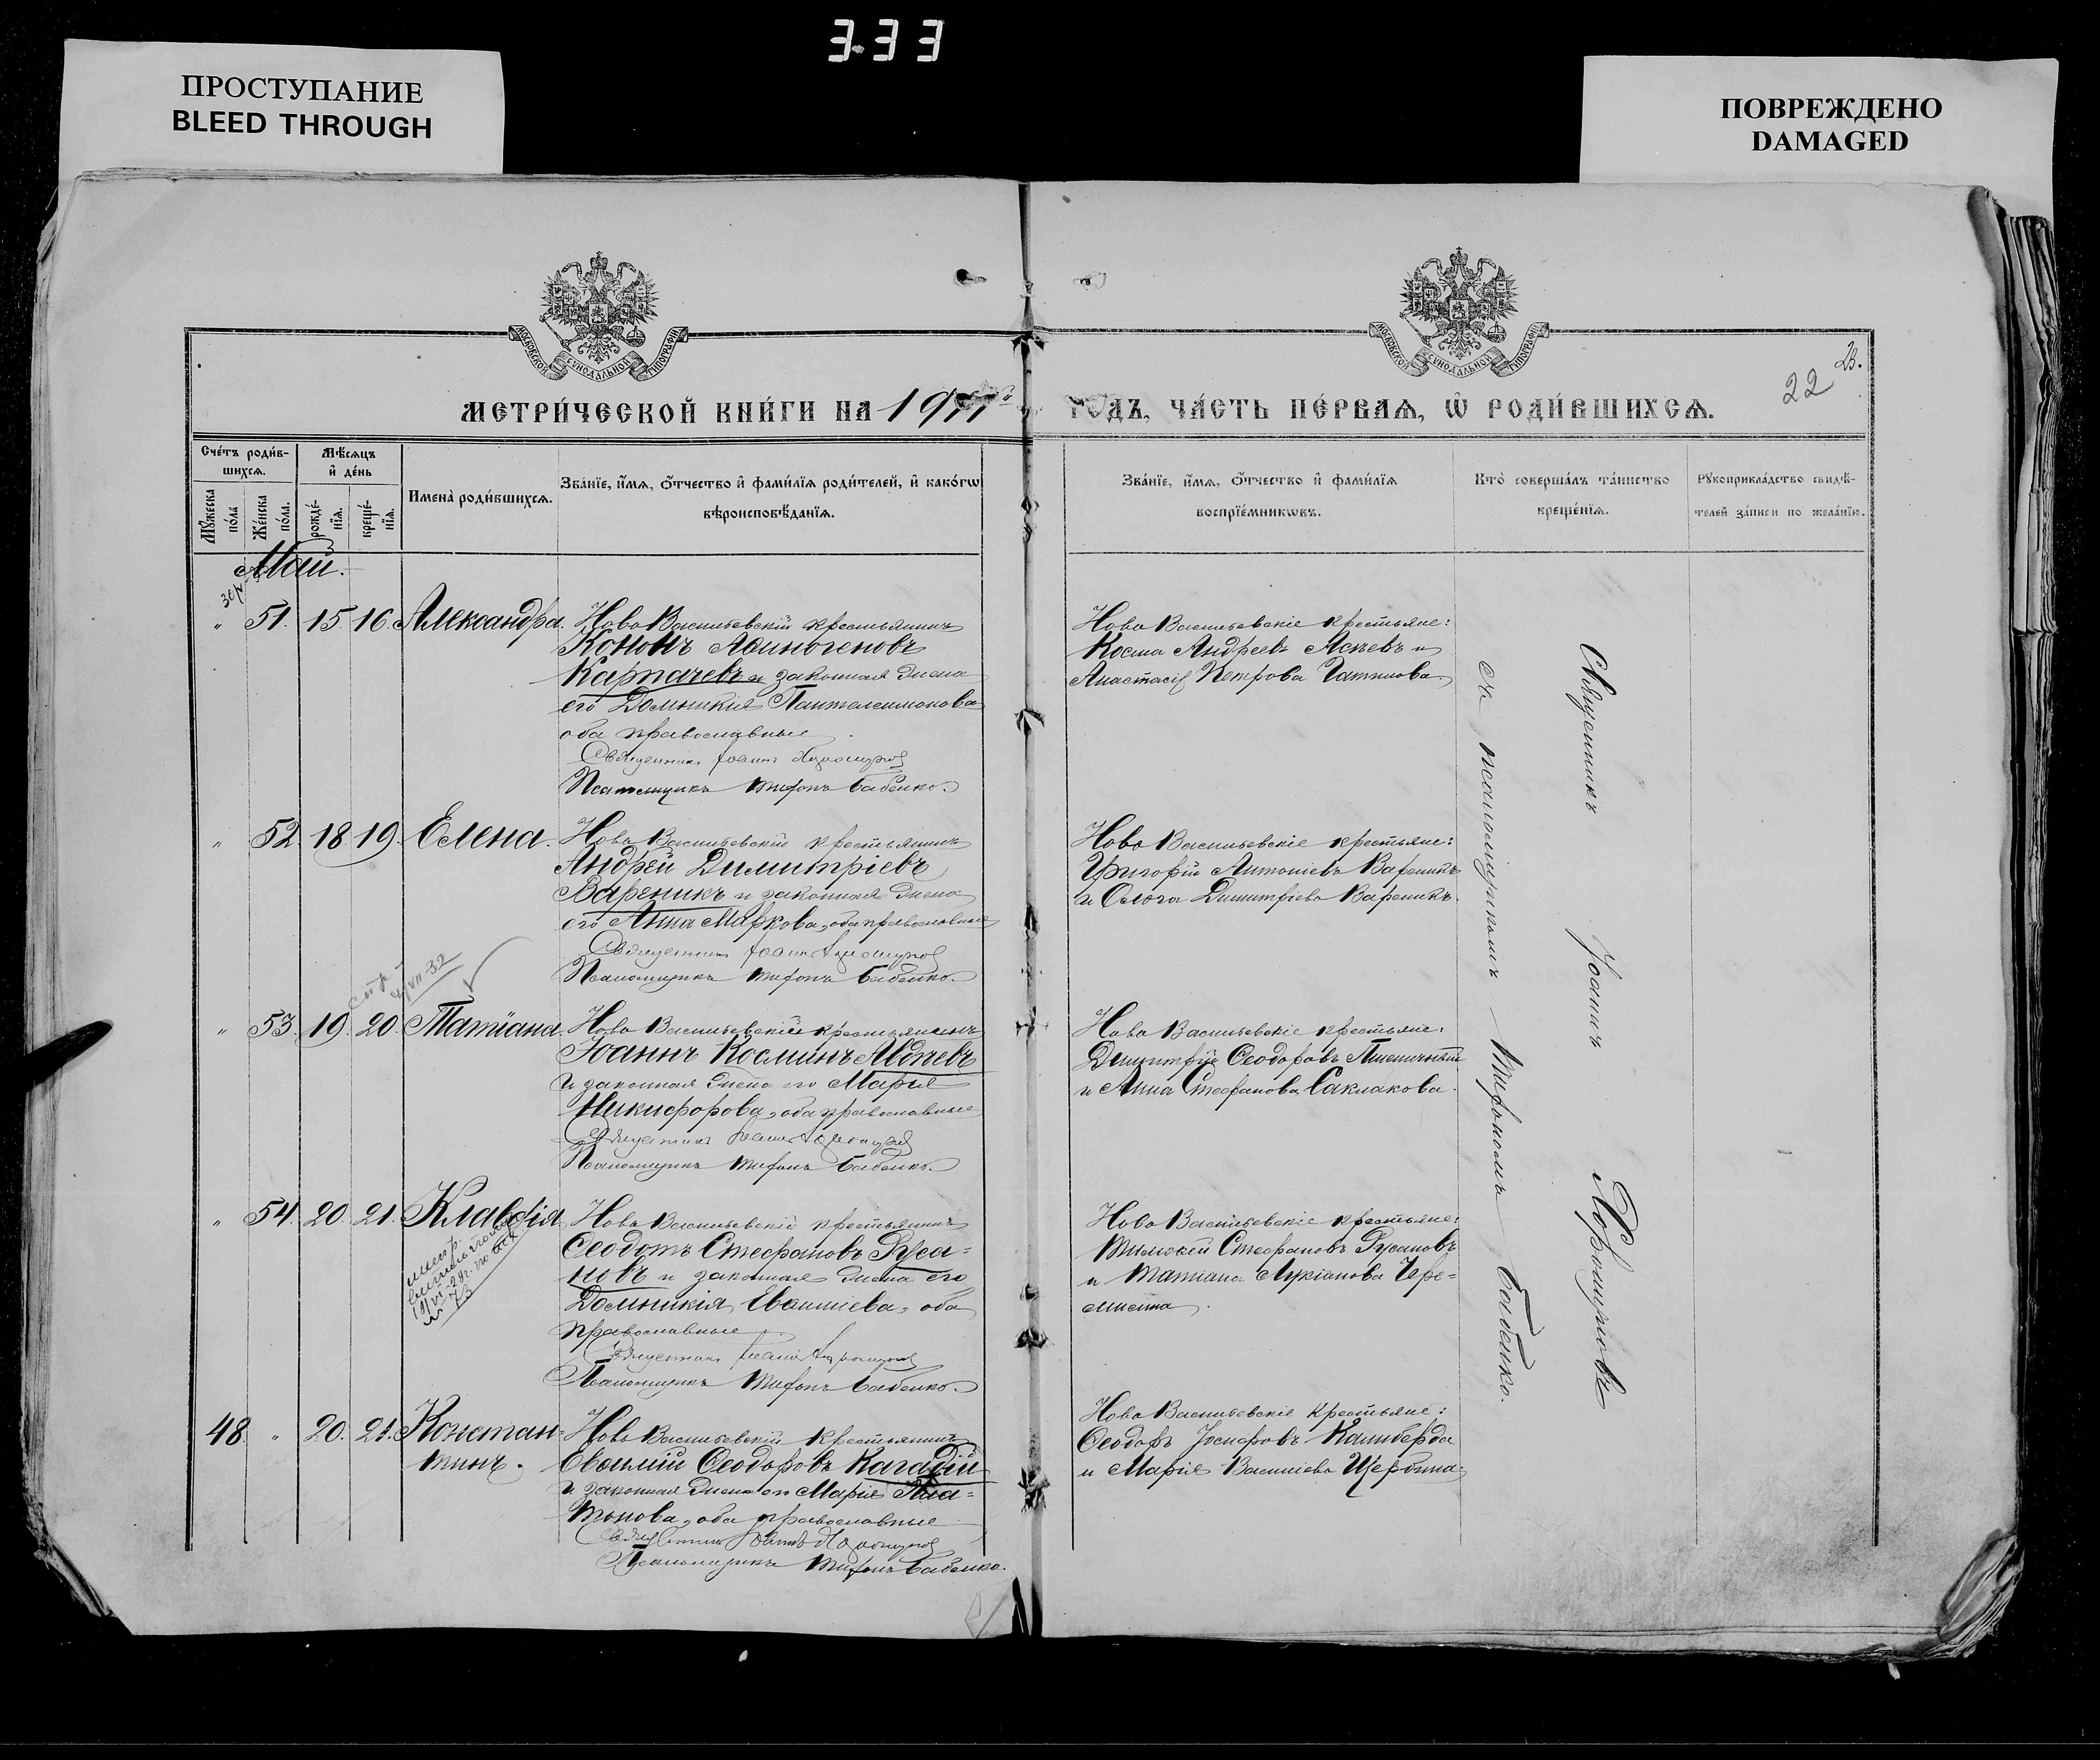 3.33
ПРОСТУПАНИЕ
BLEED THROUGH
ПОВРЕЖДЕНО
DAMAGED
МОСКОВСКОЙ СУНОДАЛЬНОЙ ТИПОГРАФІИ
МОСКОВСКОЙ СУНОДАЛЬНОЙ ТИПОГРАФІИ
23.
22
МЕТРИ́ЧЕСКОЙ КНИ́ГИ НА 1911 ГОДЪ, ЧА́СТЬ ПЕ́РВАѦ, Ѡ РОДИ́ВШИХСѦ.
Сче́тъ роди́в-
шихсѧ.
Мꙋ́жеска
по́ла
Же́нска
по́ла.
Мѣ́сѧцъ
и҆ де́нь
рожде́-
нїѧ.
креще́-
нїѧ.
Имена̀ роди́вшихсѧ.
Зва́нїе, и҆́мѧ, ѻ҆́тчество и҆ фами́лїѧ роди́телей, и҆ како́гѡ
вѣроисповѣ́данїѧ.
Зва́нїе, и҆́мѧ, ѻ҆́тчество и҆ фами́лїѧ
воспрїе́мникѡвъ.
Кто̀ соверша́лъ та́инство
креще́нїѧ.
Рꙋкоприкла́дство свидѣ́-
телей за́писи по жела́нїю.
Май.
" 51. 15. 16. Александра. Ново Васильевскій крестьянинъ
Кононъ Аѳиногеновъ
Карпачевъ и законная жена
его Домникія Пантелеимонова
оба православные
Священник Іоанн Хорошунов
Псаломщикъ Трифонъ Бабенко.
Ново Васильевскіе крестьяне:
Косма Андреевъ Асѣевъ и
Анастасія Петрова
" 52. 18. 19. Елена. Ново Васильевскій крестьянинъ
Андрей Димитріевъ
Вареникъ и законная жена
его Анна Маркова, оба православные
Священник Іоанн Хорошунов
Псаломщикъ Трифонъ Бабенко.
Ново Васильевскіе крестьяне:
Григорій Антоніевъ Вареникъ
и Ольга Димитріева Вареникъ.
VII-32
" 53. 19. 20. Татіана Ново Васильевскій крестьянинъ
Іоаннъ Косминъ Авдѣевъ
и законная жена его Марія
Никифорова, оба православные
Священник Іоанн Хорошунов
Псаломщикъ Трифонъ Бабенко.
Ново Васильевскіе крестьяне:
Димитрій Ѳеодоровъ Пшеничный
и Анна Стефанова Саклакова.
" 54. 20. 21. Клавдія Ново Васильевскій крестьянинъ
Ѳеодотъ Стефановъ Руса=
новъ и законная жена его
Домникія Евѳиміева, оба
православные
Священник Іоанн Хорошунов
Псаломщикъ Трифонъ Бабенко.
№ 73
Ново Васильевскіе крестьяне:
Тимоѳей Стефановъ Русановъ
и Татіана Лукіанова Чере=
мисина.
48. " 20. 21. Констан=
тинъ.
Ново Васильевскій крестьянинъ
Евѳимій Ѳеодоровъ Кагадій
и законная жена его Марія Пла=
тонова, оба православные
Священник Іоанн Хорошунов
Псаломщикъ Трифонъ Бабенко.
Ново Васильевскіе крестьяне:
Ѳеодоръ Іосифовъ Калиберда
и Марія Васильева Щербина.
Священникъ Іоаннъ Хорошуновъ
съ псаломщикомъ Трифономъ Бабенко.